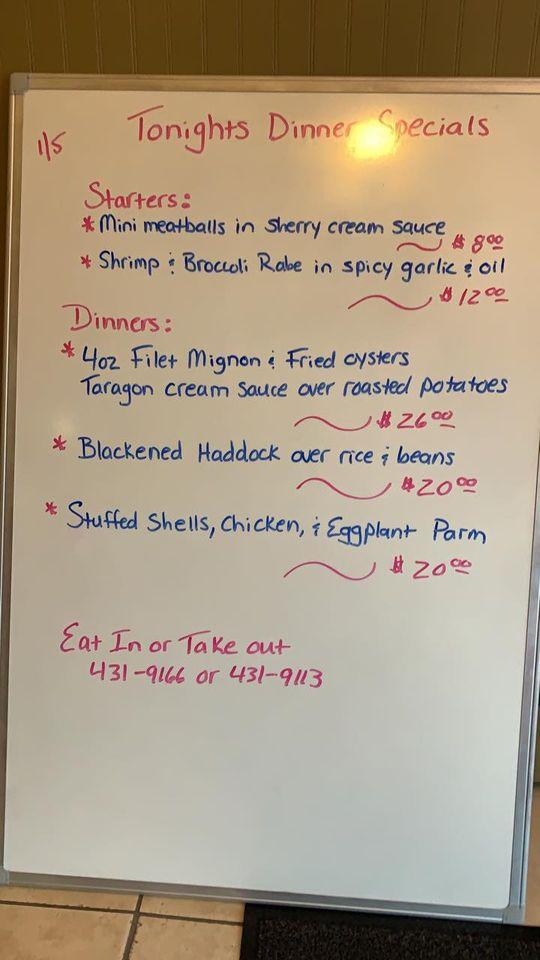 Tonights Dinner Specials
1/5
Starters:
* Mini meatballs in sherry cream sauce
$8.00
* Shrimp & Broccoli Rabe in spicy garlic & oil
$12.00
Dinners:
* 4oz Filet Mignon & Fried oysters
Taragon cream sauce over roasted potatoes
$26.00
* Blackened Haddock over rice & beans
$20.00
* Stuffed Shells, Chicken, & Eggplant Parm
$20.00
Eat In or Take out
431-9166 or 431-9113